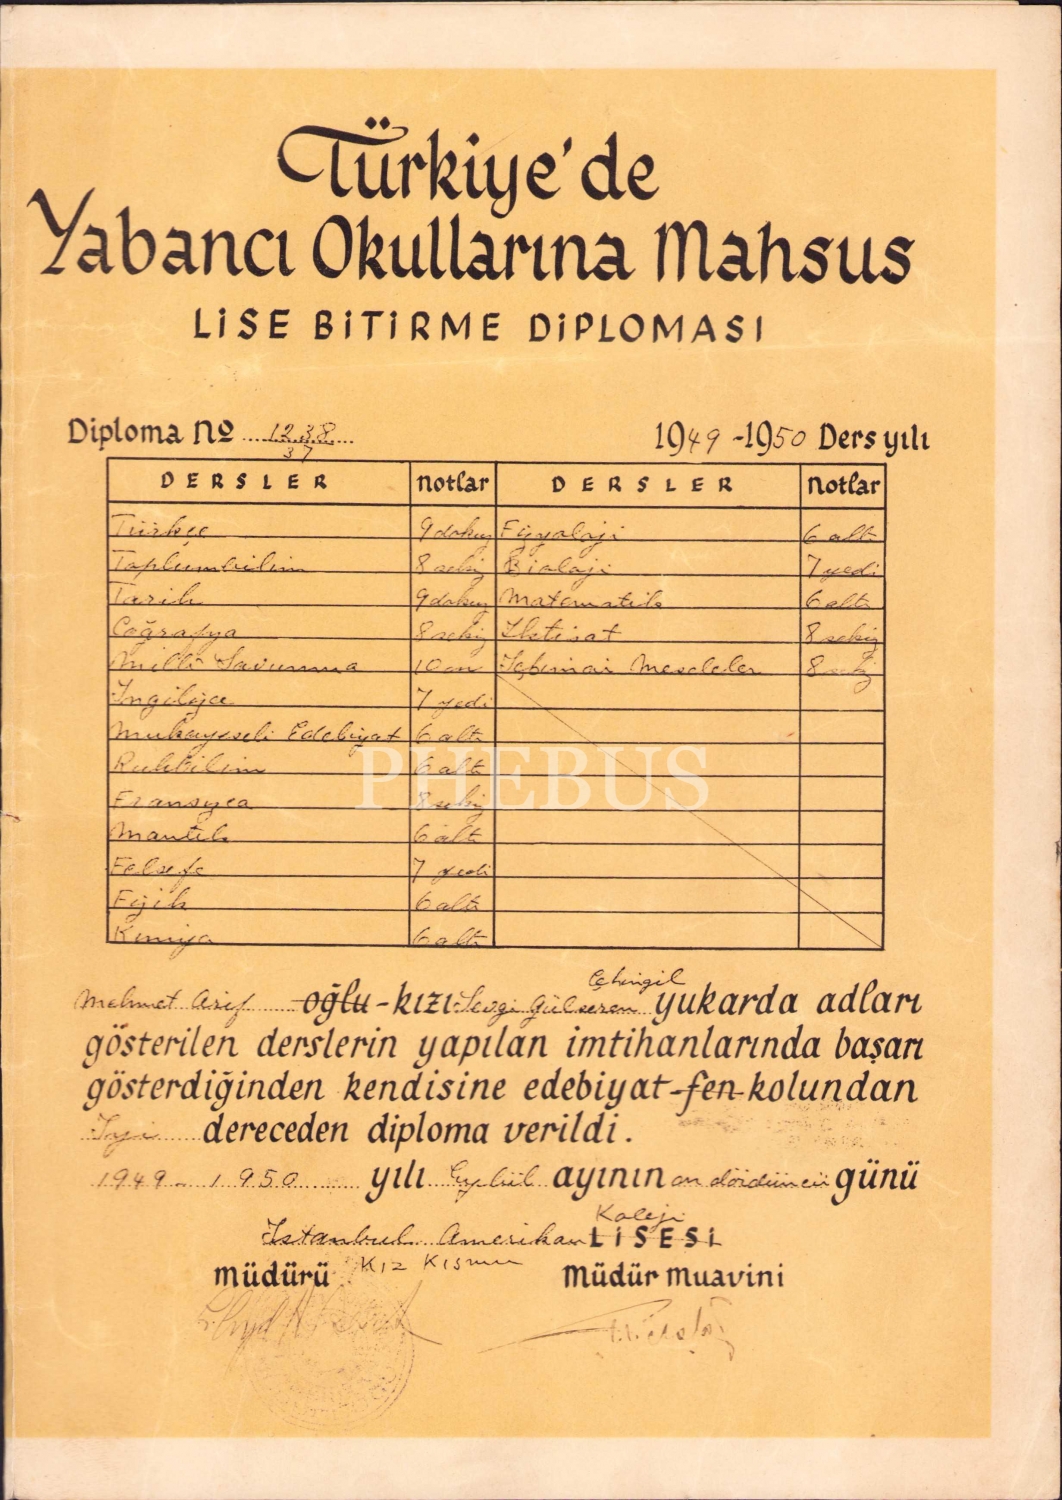 Türkiye'de
Yabancı Okullarına Mahsus
LİSE BİTİRME DİPLOMASI
Diploma № 1238 1949-1950 Ders yılı
37
DERSLER Notlar DERSLER Notlar
Türkçe 9 dokuz Fizyoloji 6 altı
Toplumbilim 8 sekiz Bioloji 7 yedi
Tarih 9 dokuz Matematik 6 altı
Coğrafya 8 sekiz İktisat 8 sekiz
Milli Savunma 10 on İçtimai Meseleler 8 sekiz
İngilizce 7 yedi
Mukayeseli Edebiyat 6 altı
Ruhbilim 6 altı
PHEBUS
Fransızca 8 sekiz
Mantık 6 altı
Felsefe 7 yedi
Fizik 6 altı
Kimya 6 altı
Mehmet Arif oğlu-kızı Sevgi Gülseren yukarda adları
gösterilen derslerin yapılan imtihanlarında başarı
gösterdiğinden kendisine edebiyat-fen-kolundan
İyi dereceden diploma verildi.
1949-1950 yılı Eylül ayının on dördüncü günü
Koleji
İstanbul Amerikan LİSESİ
Kız Kısmı
Müdürü Müdür Muavini